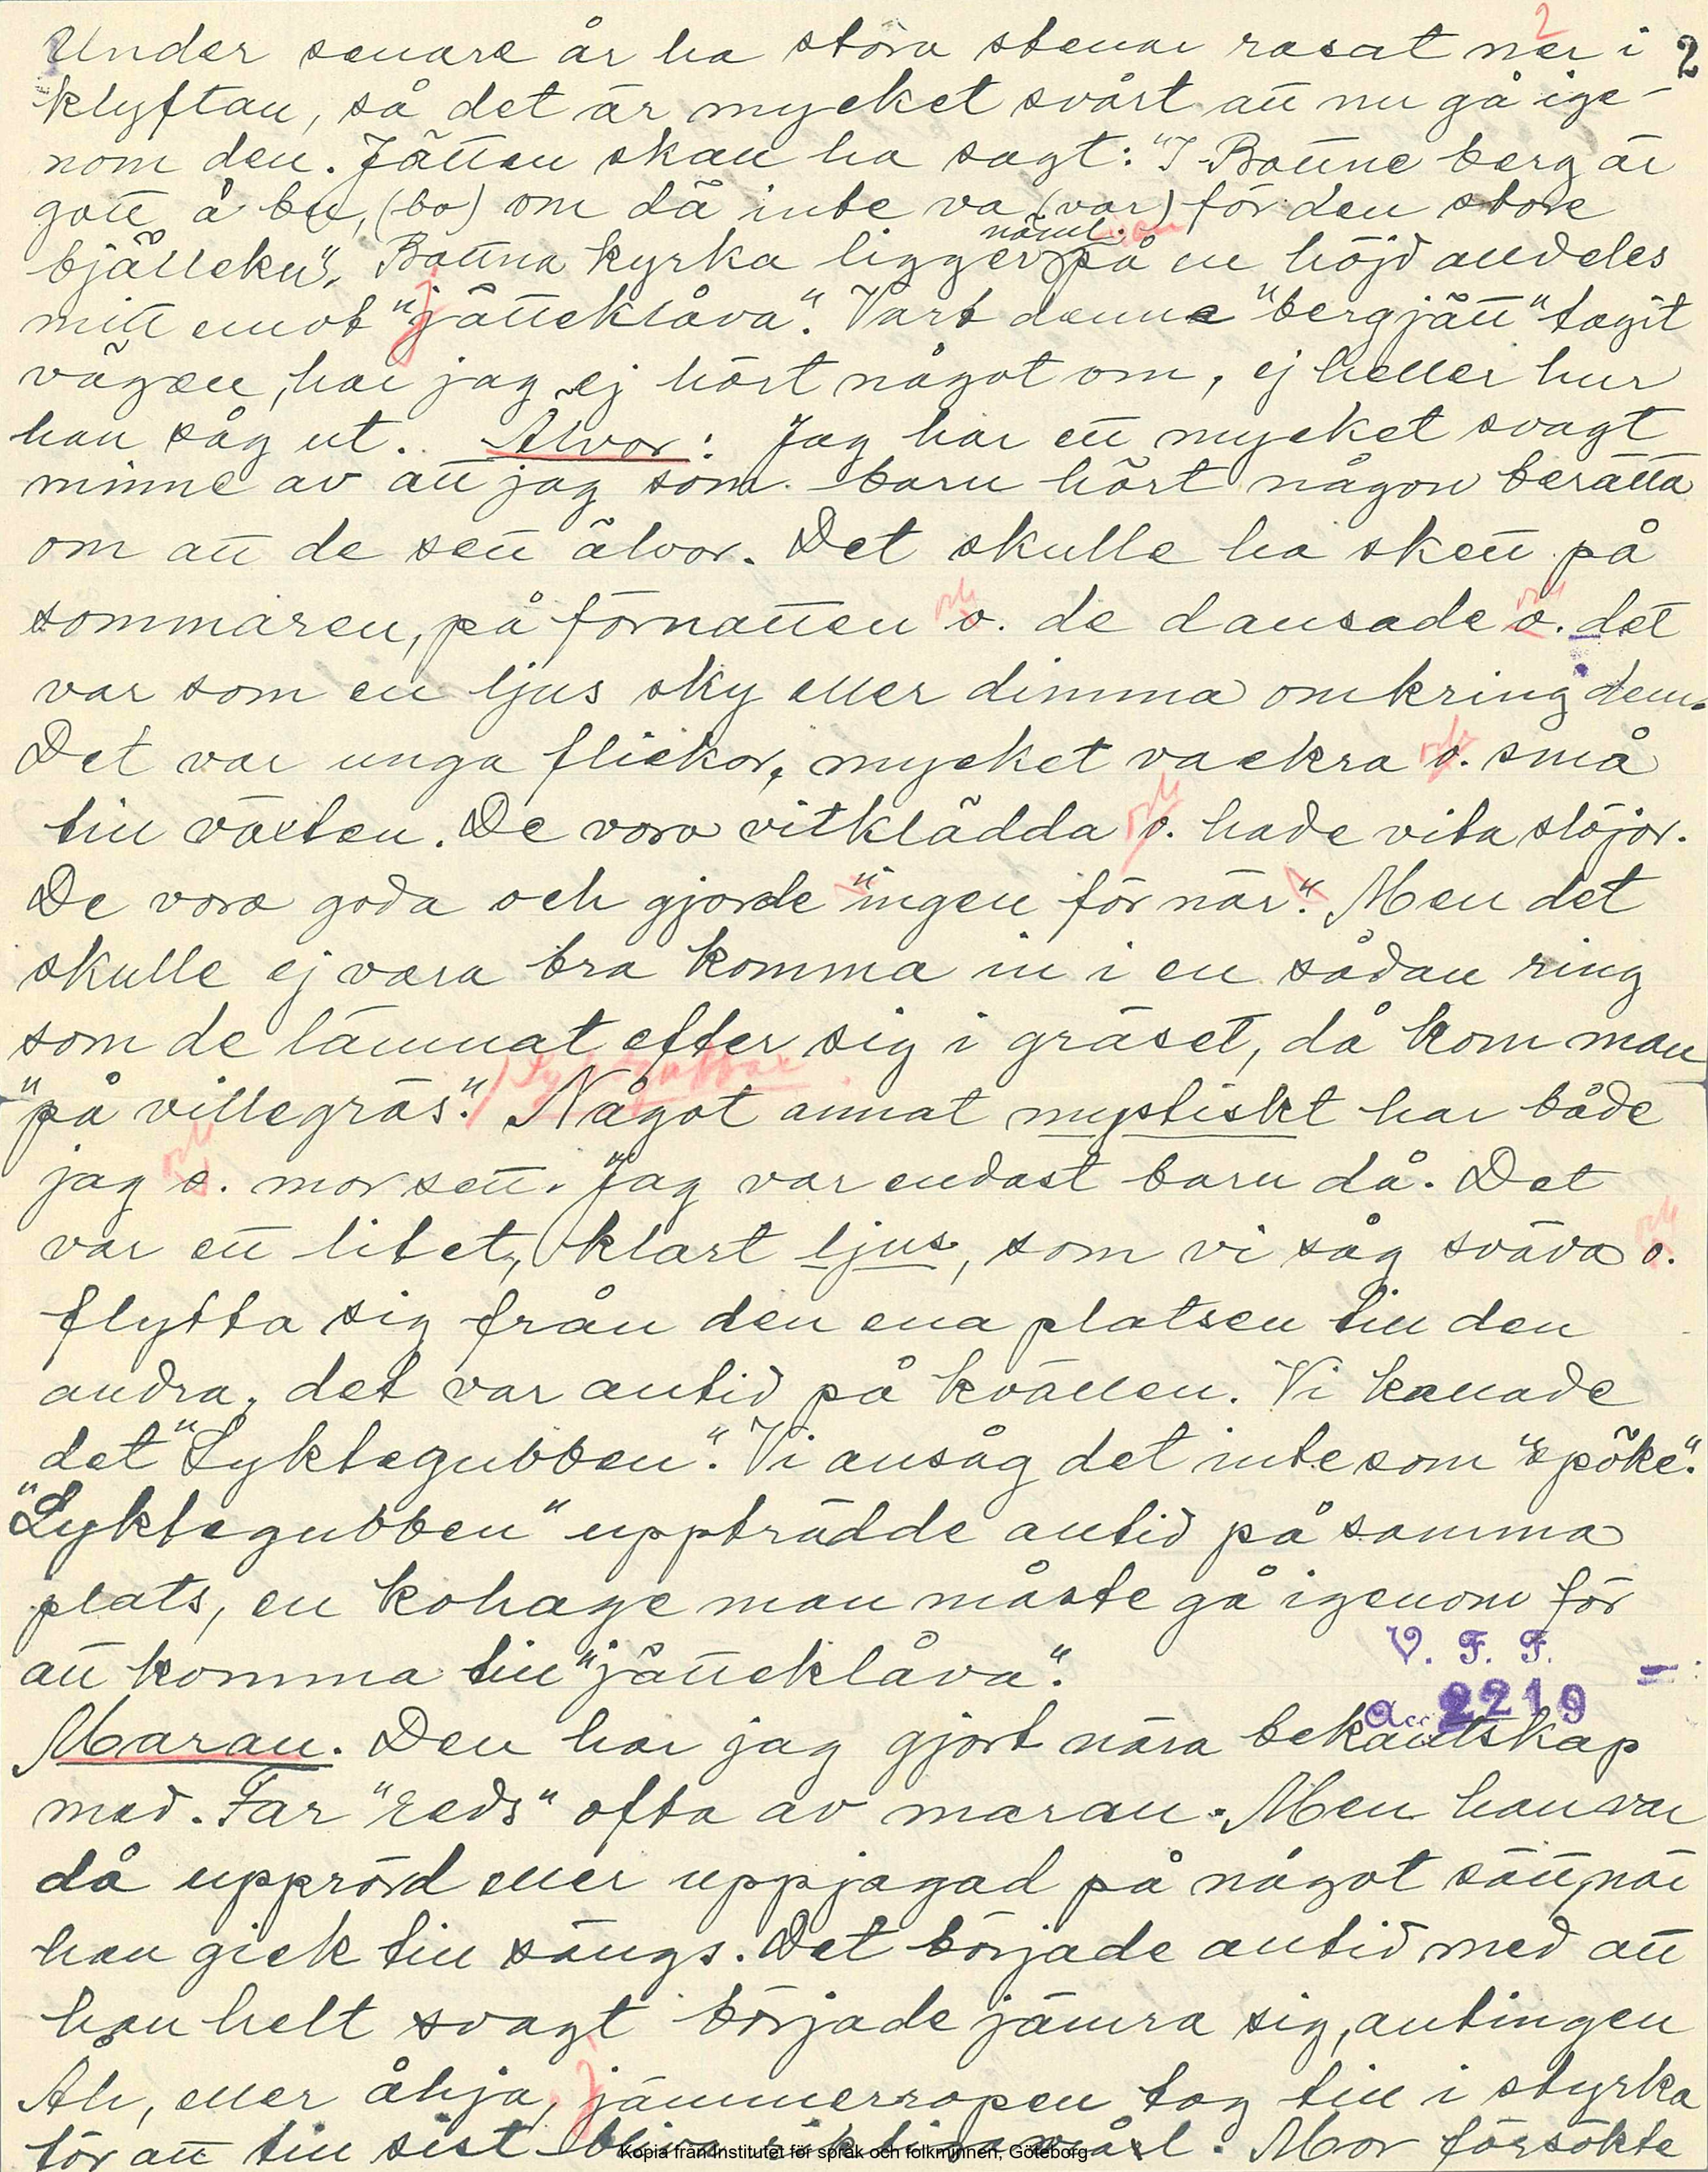 2
Under senare år ha stora stenar rasat ner i 2
klyftan, så det är mycket svårt att nu gå ige-
nom den. Jätten skall ha sagt: "I Bottne berg är
gott å bu, (bo) om dä inte va (var) för den store
näml.
bjälleku". Bottna kyrka ligger på en höjd alldeles
mitt emot "jätteklåva". Vart denna "bergjätt" tagit
vägen, har jag ej hört något om, ej heller hur
han såg ut. Älvor: Jag har ett mycket svagt
minne av att jag som barn hört någon berätta
om att de sett älvor. Det skulle ha skett på
och och
sommaren, på förnatten o. de dansade o. det
var som en ljus sky eller dimma omkring dem.
och
Det var unga flickor, mycket vackra o. små
och
till växten. De voro vitklädda o. hade vita slöjor.
De voro goda och gjorde "ingen för när". Men det
skulle ej vara bra komma in i en sådan ring
som de lämnat efter sig i gräset, då kom man
"på villegräs". Något annat mystiskt har både
och
jag o. mor sett. Jag var endast barn då. Det
och
var ett litet, klart ljus, som vi såg sväva o.
flytta sig från den ena platsen till den
andra, det var alltid på kvällen. Vi kallade
det "Lyktegubben". Vi ansåg det inte som "spöke".
"Lyktegubben" uppträdde alltid på samma
plats, en kohage man måste gå igenom för
att komma till "jätteklåva".
V. F. F.
Acc 2219
Maran. Den har jag gjort nära bekantskap
med. Far "reds" ofta av maran. Men han var
då upprörd eller uppjagad på något sätt, när
han gick till sängs. Det började alltid med att
han helt svagt började jämra sig, antingen
Ah, eller åhja, jämmerropen tog till i styrka
för att till sist bliva riktiga vrål. Mor försökte
Kopia från Institutet för språk och folkminnen, Göteborg